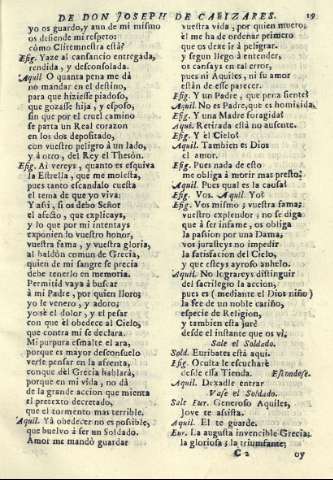 DE DON JOSEPH DE CAÑIZARES. 19
yo os guardo, y aun de mi mismo
os defiende mi respeto:
còmo Clitemnestra està?
Efig. Yaze al cansancio entregada,
rendida, y desconsolada.
Aquil. O quanta pena me dà
no mandar en el destino,
para que hiziesse piadoso,
que gozasse hija, y esposo,
sin que por el cruel camino
se parta un Real corazon
en los dos depositado,
con vuestro peligro à un lado,
y à otro, del Rey el Thesòn.
Efig. Ai vereys, quanto es esquiva
la Estrella, que me molesta,
pues tanto escandalo cuesta
el tema de que yo viva:
Y assi, si os debo Señor
el afecto, que explicays,
y lo que por mi intentays
exponien lo vuestro honor,
vuestra fama, y vuestra gloria,
al baldòn comun de Grecia,
quien de mi sangre se precia
debe tenerlo en memoria.
Permitid vaya à buscar
à mi Padre, por quien lloro;
yo le venero, y adoro;
yo sè el dolor, y el pesar
con que el obedece al Cielo,
que contra mi se declara.
Mi purpura esmalte el ara,
porque es mayor desconsuelo
verle pensar en la afrenta,
conque del Grecia hablarà,
porque en mi vida, no dà
de la grande accion que intenta
el pretexto decretado,
que el tormento mas terrible.
Aquil. Yà obedecer no es posible,
que buelvo à ser un Soldado.
Amor me mandò guardar
vuestra vida, por quien muero;
èl me ha de ordenar primero
que os dexe ir à peligrar.
y segun llego à entender,
os cansays en tal error,
pues ni Aquiles, ni su amor
estàn de esse parecer.
Efig. Y un Padre, que pena siente?
Aquil. No es Padre, que es homicida.
Efig. Y una Madre foragida?
Aqui. Retirada està no ausente.
Efig. Y el Cielo?
Aquil. Tambien es Dios
el amor.
Efig. Pues nada de esto
me obliga à morir mas presto?
Aquil. Pues qual es la causa?
Efig. Vos. Aquil. Yo?
Efig. Vos mismo; vuestra fama;
vuestro explendor; no se diga
que à ser infame, os obliga
la passion por una Dama,
vos jurasteys no impedir
la satisfacion del Cielo,
y que esseys ayroso anhelo.
Aquil. No logareys distinguir
del sacrilegio la accion,
pues es (mediante el Dios niño)
la fee de un noble cariño,
especie de Religion,
y tambien esta jurè
desde el instante que os vi.
Sale el Soldado.
Sold. Euribates està aqui.
Efig. Oculta le escucharè
desde essa Tienda. Escondese.
Aquil. Dexadle entrar
Vase el Soldado.
Sale Eur. Generoso Aquiles,
Jove te assista.
Aquil. El te guarde.
Eur. La augusta invencible Grecia;
la gloriosa; la triumfante;
C 2 oy